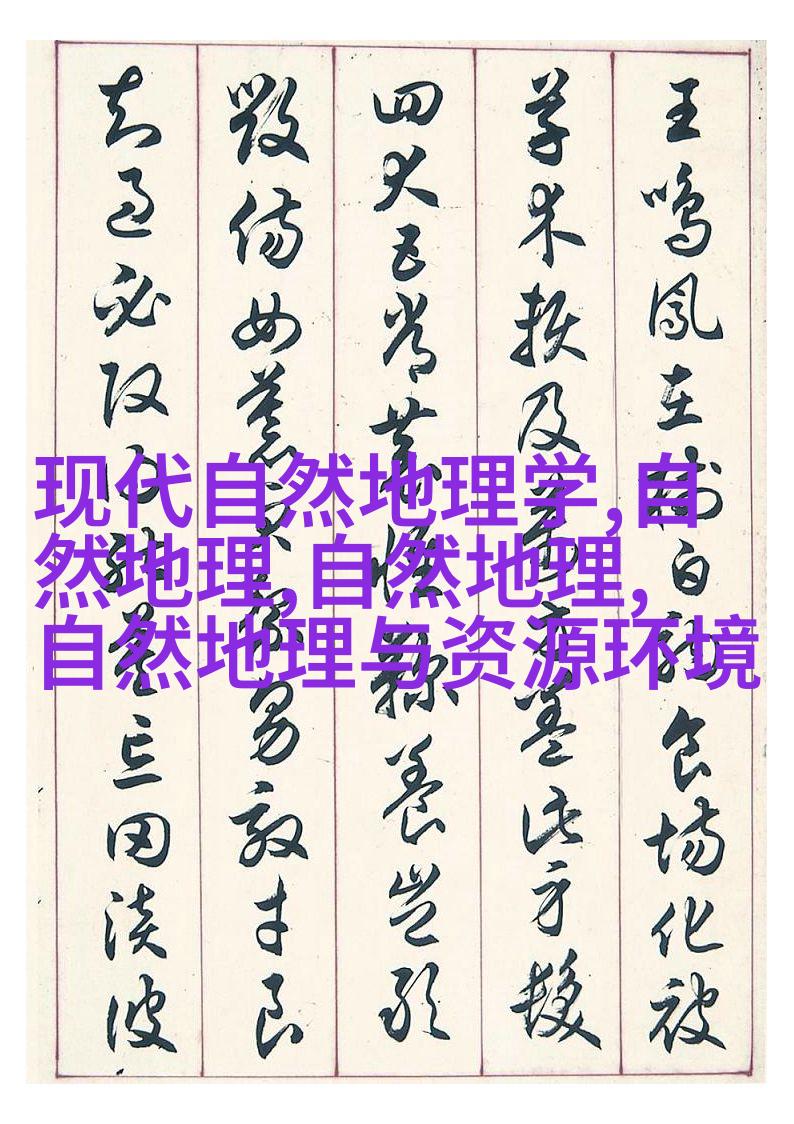 现代自然地理学,自
然地理,自然地理,
自然地理与资源环境
王鳴鳳在樹白駒食場化被
草木賴及萬方蓋此身髮
四大五常恭惟鞠養豈敢
毀傷女慕貞絜男效才良
知過必改得能莫忘罔談彼